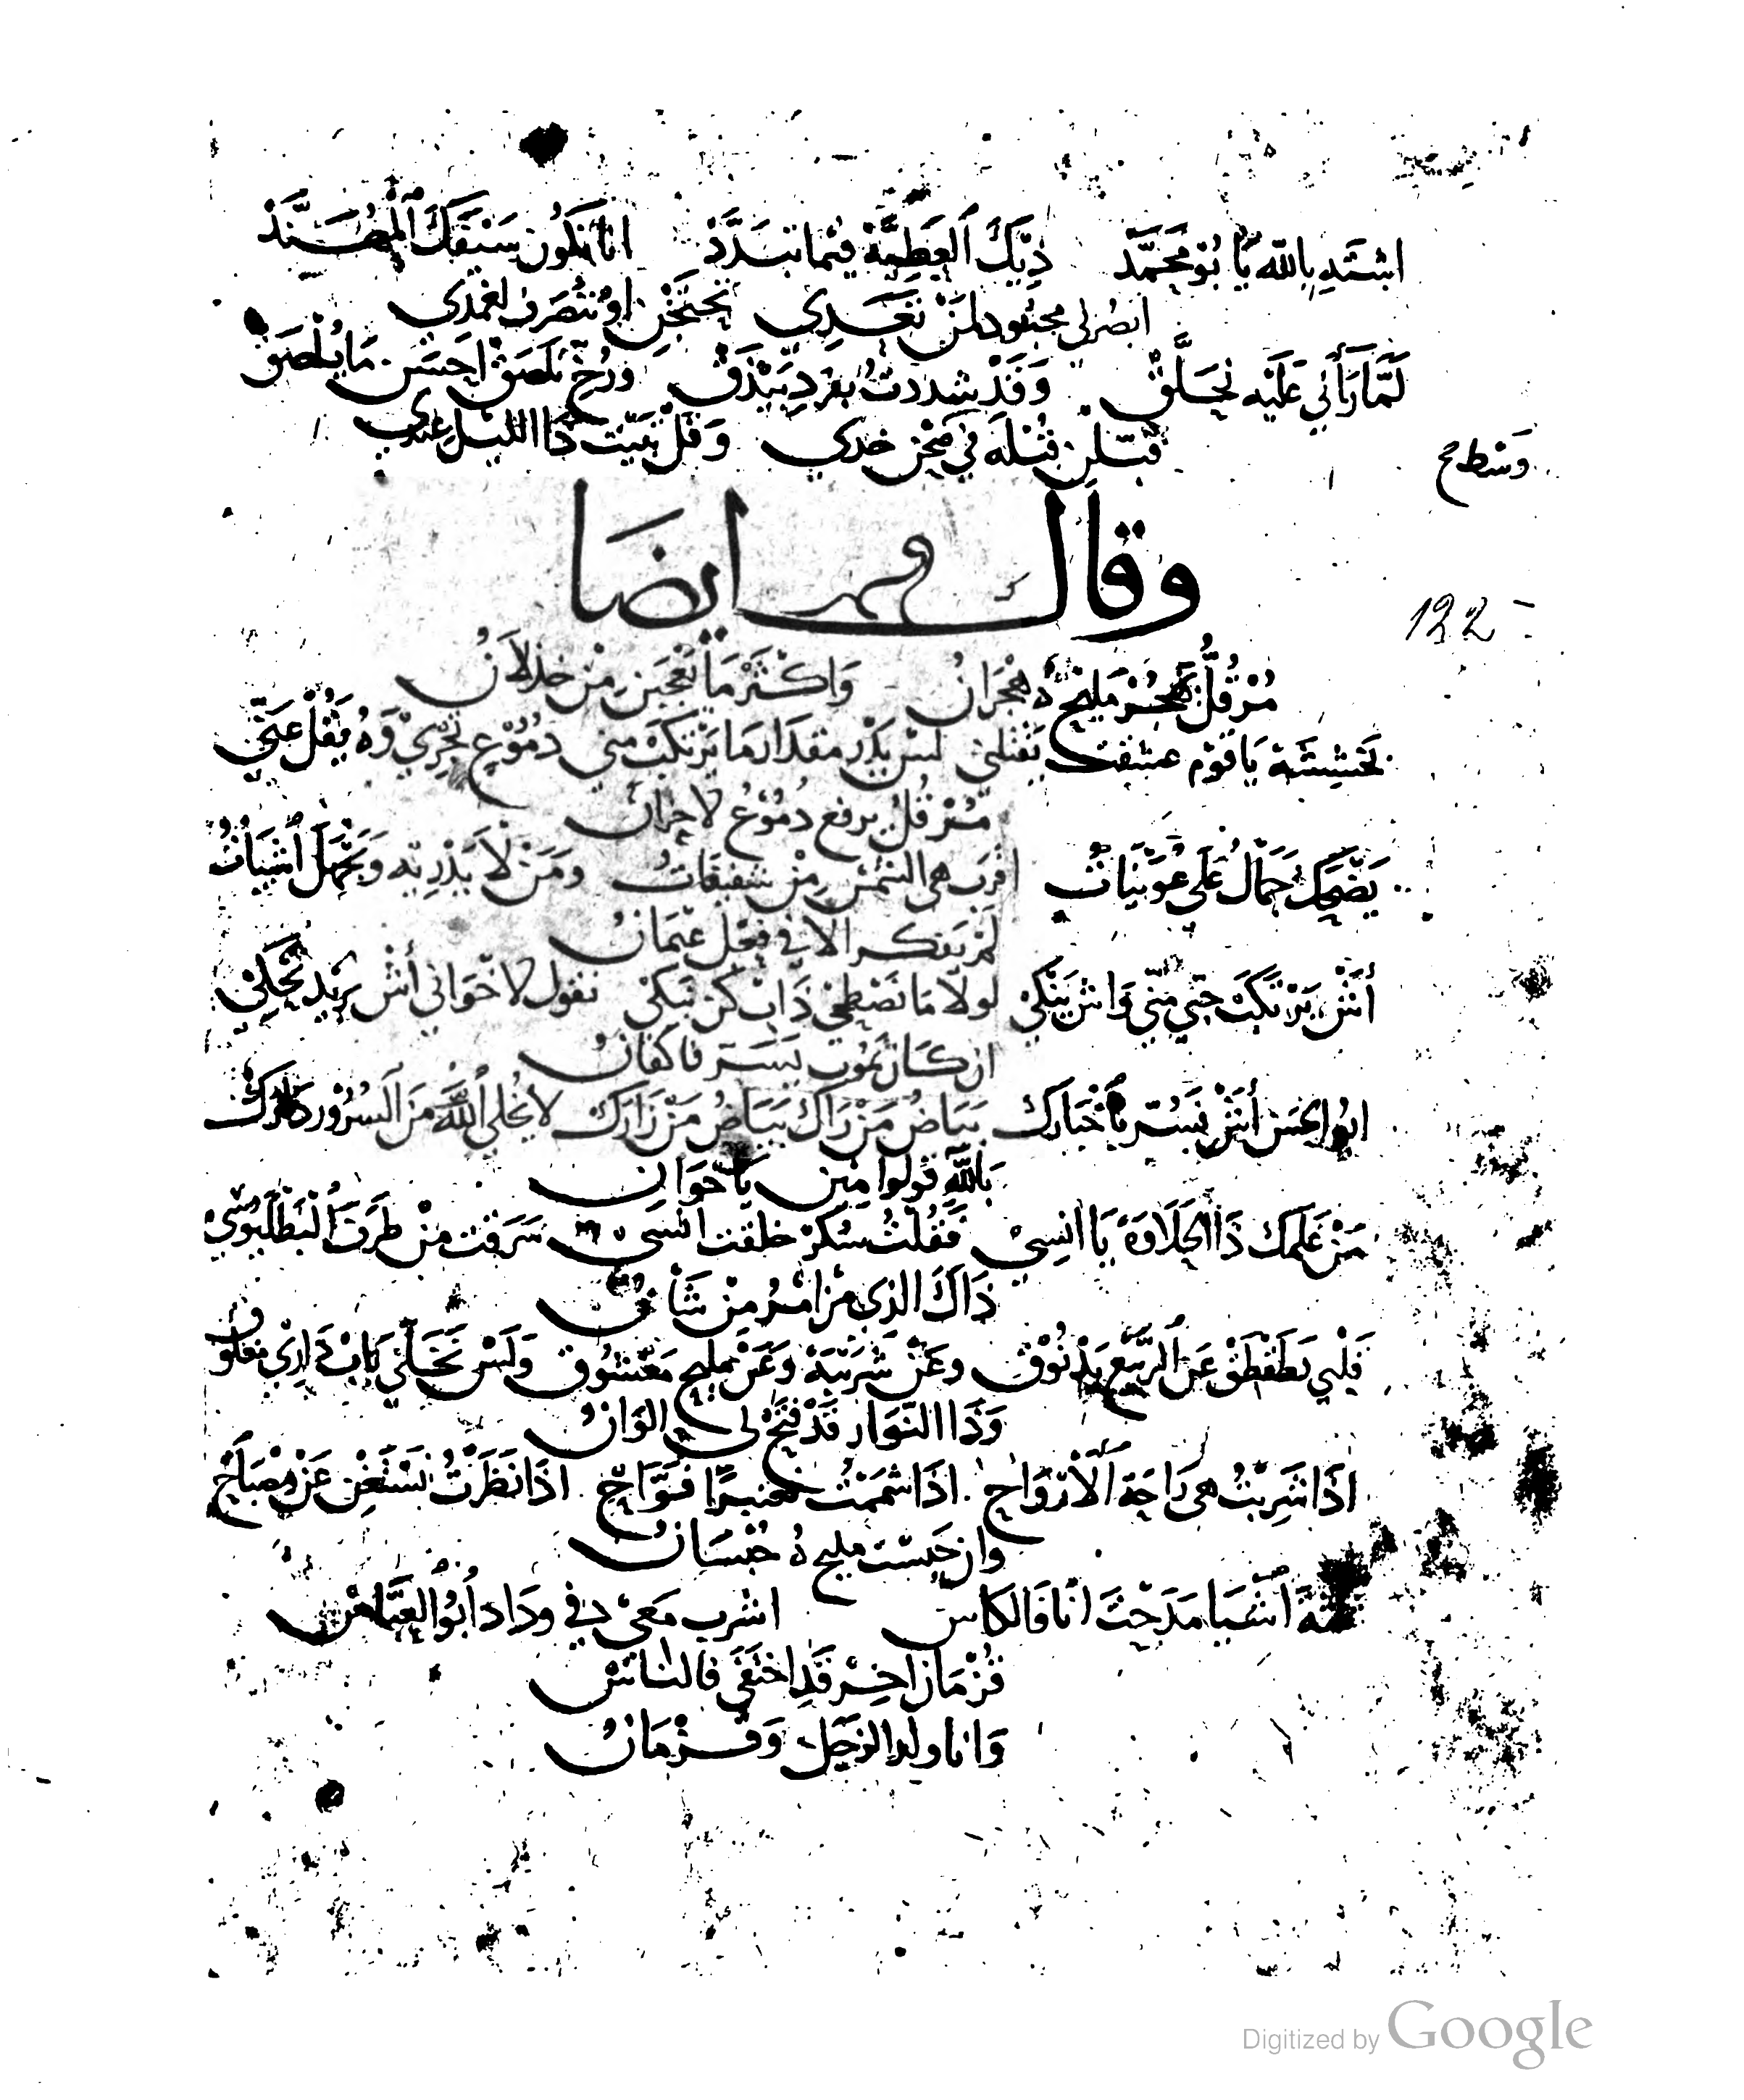 اشتد بالله يا بو محمد ذيك العطية فيما تبدد انا نكون سيفك المهند
ابصر لي مجبود لمن تعدي نحتجن او نتصرف لغمدي
لما رأني عليه نحلق وقد شددت بفرد بيذق ورخ نلصق احسن ما يلصق
قبلن قبله في صحن خدي وقل تبيت ذا الليل عندي
وسط
وقال ايضا
122
مر قل هجر مليح ه هجران واكثر ما تعجبن من خذلان
بخشيشة يا قوم عشقت يقتلني لس يدر مقدار ما يرتكب مني دموع تجري وه يقل عني
مر قل يرفع دموع لاجران
يضحك جمال على عوينات اقرب هي الشمس من شفيفات ومن لا يدريه ويجهل اشيات
لم يفتكر الا في فعل عثمان
أش يرتكب حبي مني واش ينكي لولا ما نصطحي ذاب كن نبكي نقول لاخواني أش يريد نحكي
ان كان نموت بستر فاكفان
ابو الحسن أش نستر باخبارك بياض من راك بياض من زارك لا يخلي الله من السرور دارك
بالله قولوا مين يا خوان
من علمك ذا الحلاوة يا انسي فقلت سكر خلقت انسي سرقت من طرف البطليوسي
ذاك الذي من امر من شان
قلبي تطقطق عن الربيع يدنوق وعن شريبة وعن مليح معشوق ولس نخلي باب داري مغلوق
وذا النوار قد فتح لي الوان
اذا شربت هي راحة الارواح اذا شممت عنبرا فواح اذا نظرت نستغن عن مصباح
وان حبست مليح ه حبسان
اشيا مدحت انا فالكاس اشرب معي في وداد أبو العباس
قزمان اخر قد اختفى فالناس
وانا ولد الزجل وقزمان
Digitized by Google